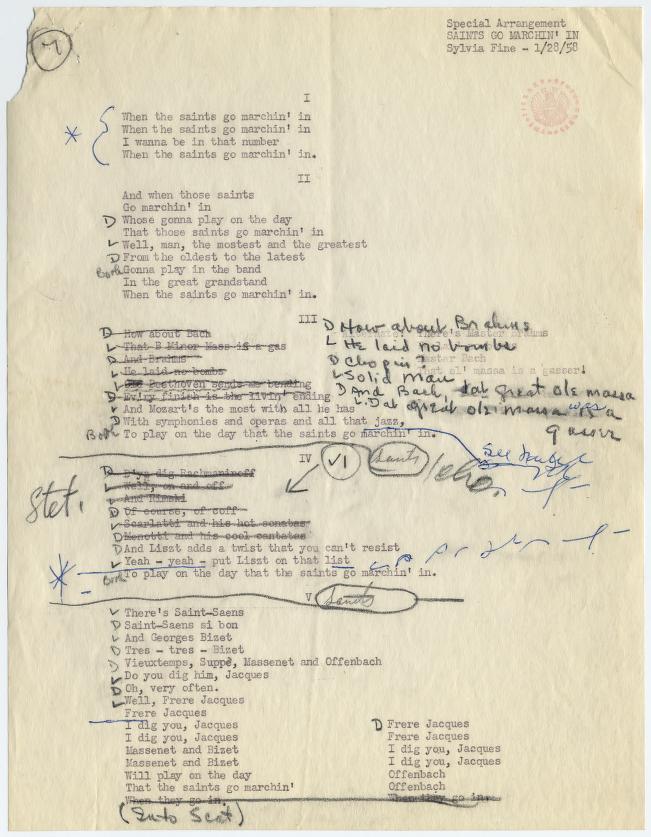 7
Special Arrangement
SAINTS GO MARCHIN' IN
Sylvia Fine - 1/28/58
I
When the saints go marchin' in
When the saints go marchin' in
I wanna be in that number
When the saints go marchin' in.
II
And when those saints
Go marchin' in
D Whose gonna play on the day
That those saints go marchin' in
L Well, man, the mostest and the greatest
D From the oldest to the latest
Both Gonna play in the band
In the great grandstand
When the saints go marchin' in.
III
D How about Bach
L That B Minor Mass is a gas
D And Brahms
L He laid no bombs
L Beethoven sends me
D Ev'ry finish is the livin' ending
L And Mozart's the most with all he has
D With symphonies and operas and all that jazz,
Both To play on the day that the saints go marchin' in.
D How about Brahms
L He laid no bombs
D Chopin?
L Solid Man
D And Bach, dat great ole massa
L Dat great ole massa was a
gasser
There's Master Brahms
Master Bach
ol' massa is a gasser!
IV
Stet.
D D'you dig Rachmaninoff
L Well, on and off
L And Rimski
D Of course, of coff
L Scarlatti and his hot sonatas
D Menotti and his cool cantatas
D And Liszt adds a twist that you can't resist
L Yeah - yeah - put Liszt on that list
Both To play on the day that the saints go marchin' in.
V
L There's Saint-Saens
D Saint-Saens si bon
L And Georges Bizet
D Tres - tres - Bizet
D Vieuxtemps, Suppé, Massenet and Offenbach
L Do you dig him, Jacques
D Oh, very often.
L Well, Frere Jacques
Frere Jacques
I dig you, Jacques
I dig you, Jacques
Massenet and Bizet
Massenet and Bizet
Will play on the day
That the saints go marchin'
When they go in.
D Frere Jacques
Frere Jacques
I dig you, Jacques
I dig you, Jacques
Offenbach
Offenbach
When they go in.
(Into Scat)